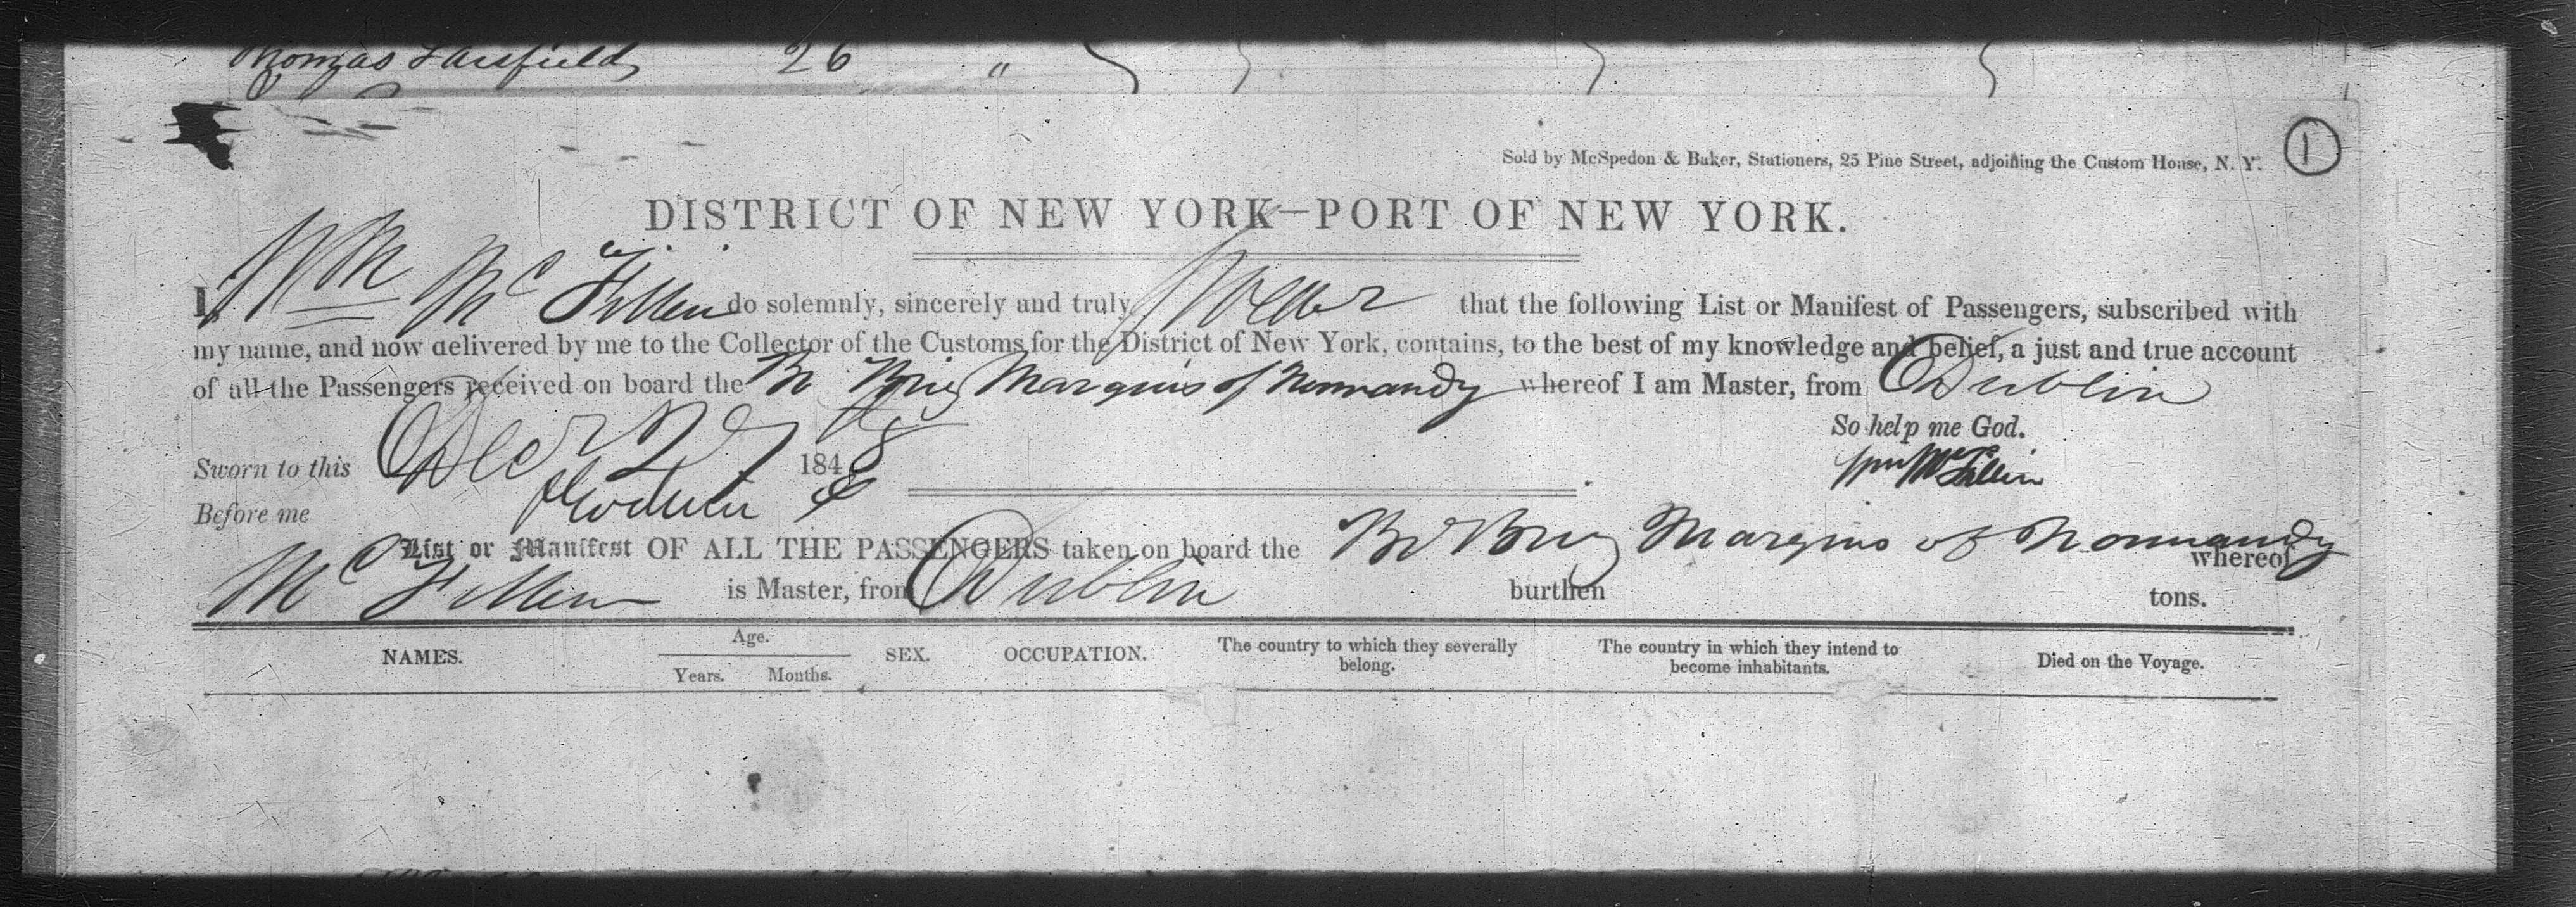 Thomas Fairfield 26 "
1
Sold by McSpedon & Baker, Stationers, 25 Pine Street, adjoining the Custom House, N. Y.
DISTRICT OF NEW YORK—PORT OF NEW YORK.
I, Wm McFillin do solemnly, sincerely and truly swear that the following List or Manifest of Passengers, subscribed with
my name, and now delivered by me to the Collector of the Customs for the District of New York, contains, to the best of my knowledge and belief, a just and true account
of all the Passengers received on board the Br Brig Marquis of Normandy whereof I am Master, from Dublin
So help me God.
Sworn to this Decr 27 1848
Wm McFillin
Before me
List or Manifest OF ALL THE PASSENGERS taken on board the Br Brig Marquis of Normandy whereof
McFillin is Master, from Dublin burthen tons.
NAMES. Age. Years. Months. SEX. OCCUPATION. The country to which they severally belong. The country in which they intend to become inhabitants. Died on the Voyage.